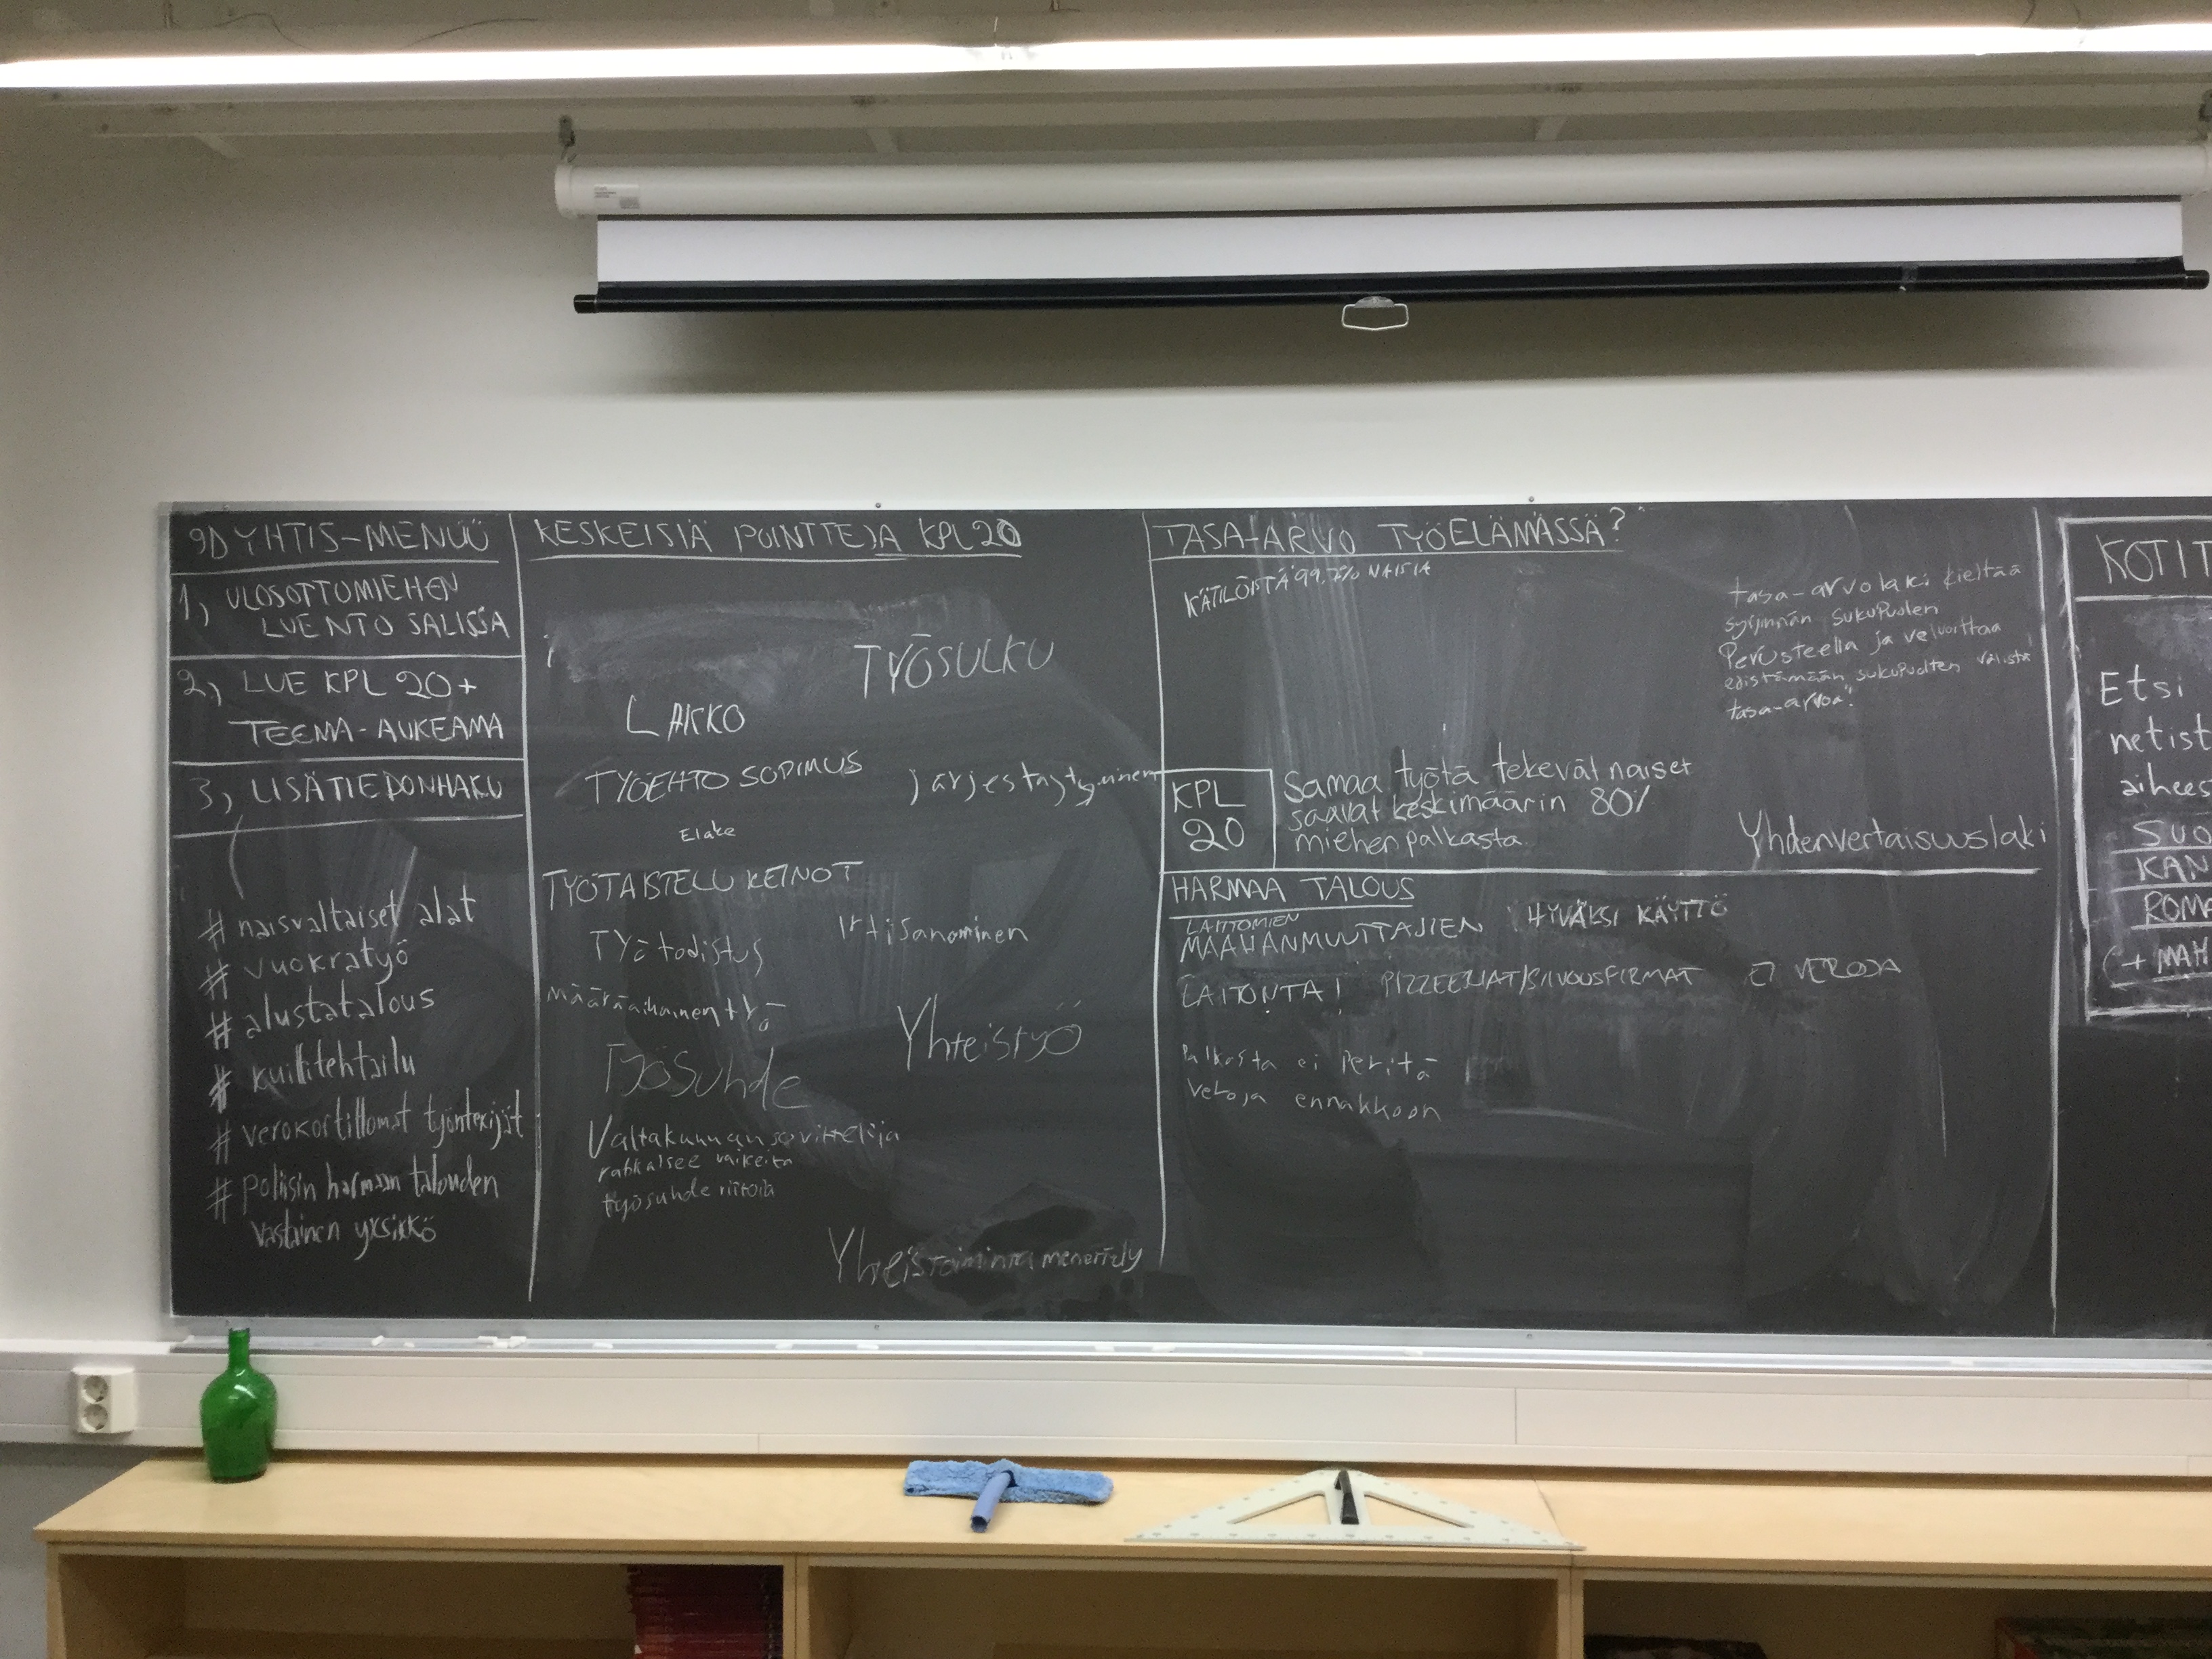 9D YHTIS-MENUÜ
1, ULOSOTTOMIEHEN
LUENTO SALISSA
2, LUE KPL 20+
TEEMA-AUKEAMA
3, LISÄTIEDONHAKU
# naisvaltaiset alat
# vuokratyö
# alustatalous
# kuittitehtailu
# verokortittomat työntekijät
# poliisin harmaan talouden
vastainen yksikkö
KESKEISIÄ POINTTEJA KPL 20
TYÖSULKU
LAKKO
TYÖEHTO SOPIMUS
järjestäytyminen
Eläke
TYÖTAISTELU KEINOT
Irtisanominen
TYötodistus
määräaikainen työ
Yhteistyö
Työsuhde
Valtakunnansovittelija
ratkaisee vaikeita
työsuhde riitoja
Yhteistoiminta menettely
TASA-ARVO TYÖELÄMÄSSÄ?
KÄTILÖISTÄ 99.7% NAISIA
tasa-arvolaki kieltää
syrjinnän sukupuolen
Perusteella ja velvoittaa
edistämään sukupuolten välistä
tasa-arvoa"
KPL
20
Samaa työtä tekevät naiset
saavat keskimäärin 80%
miehen palkasta
Yhdenvertaisuuslaki
HARMAA TALOUS
LAITTOMIEN
MAAHANMUUTTAJIEN HYVÄKSI KÄYTTÖ
LAITONTA! PIZZERIAT/SIIVOUSFIRMAT EI VEROJA
Palkasta ei peritä
veroja ennakkoon
KOTIT
Etsi
netist
aihees
SUO
KAN
ROMA
(+ MAH